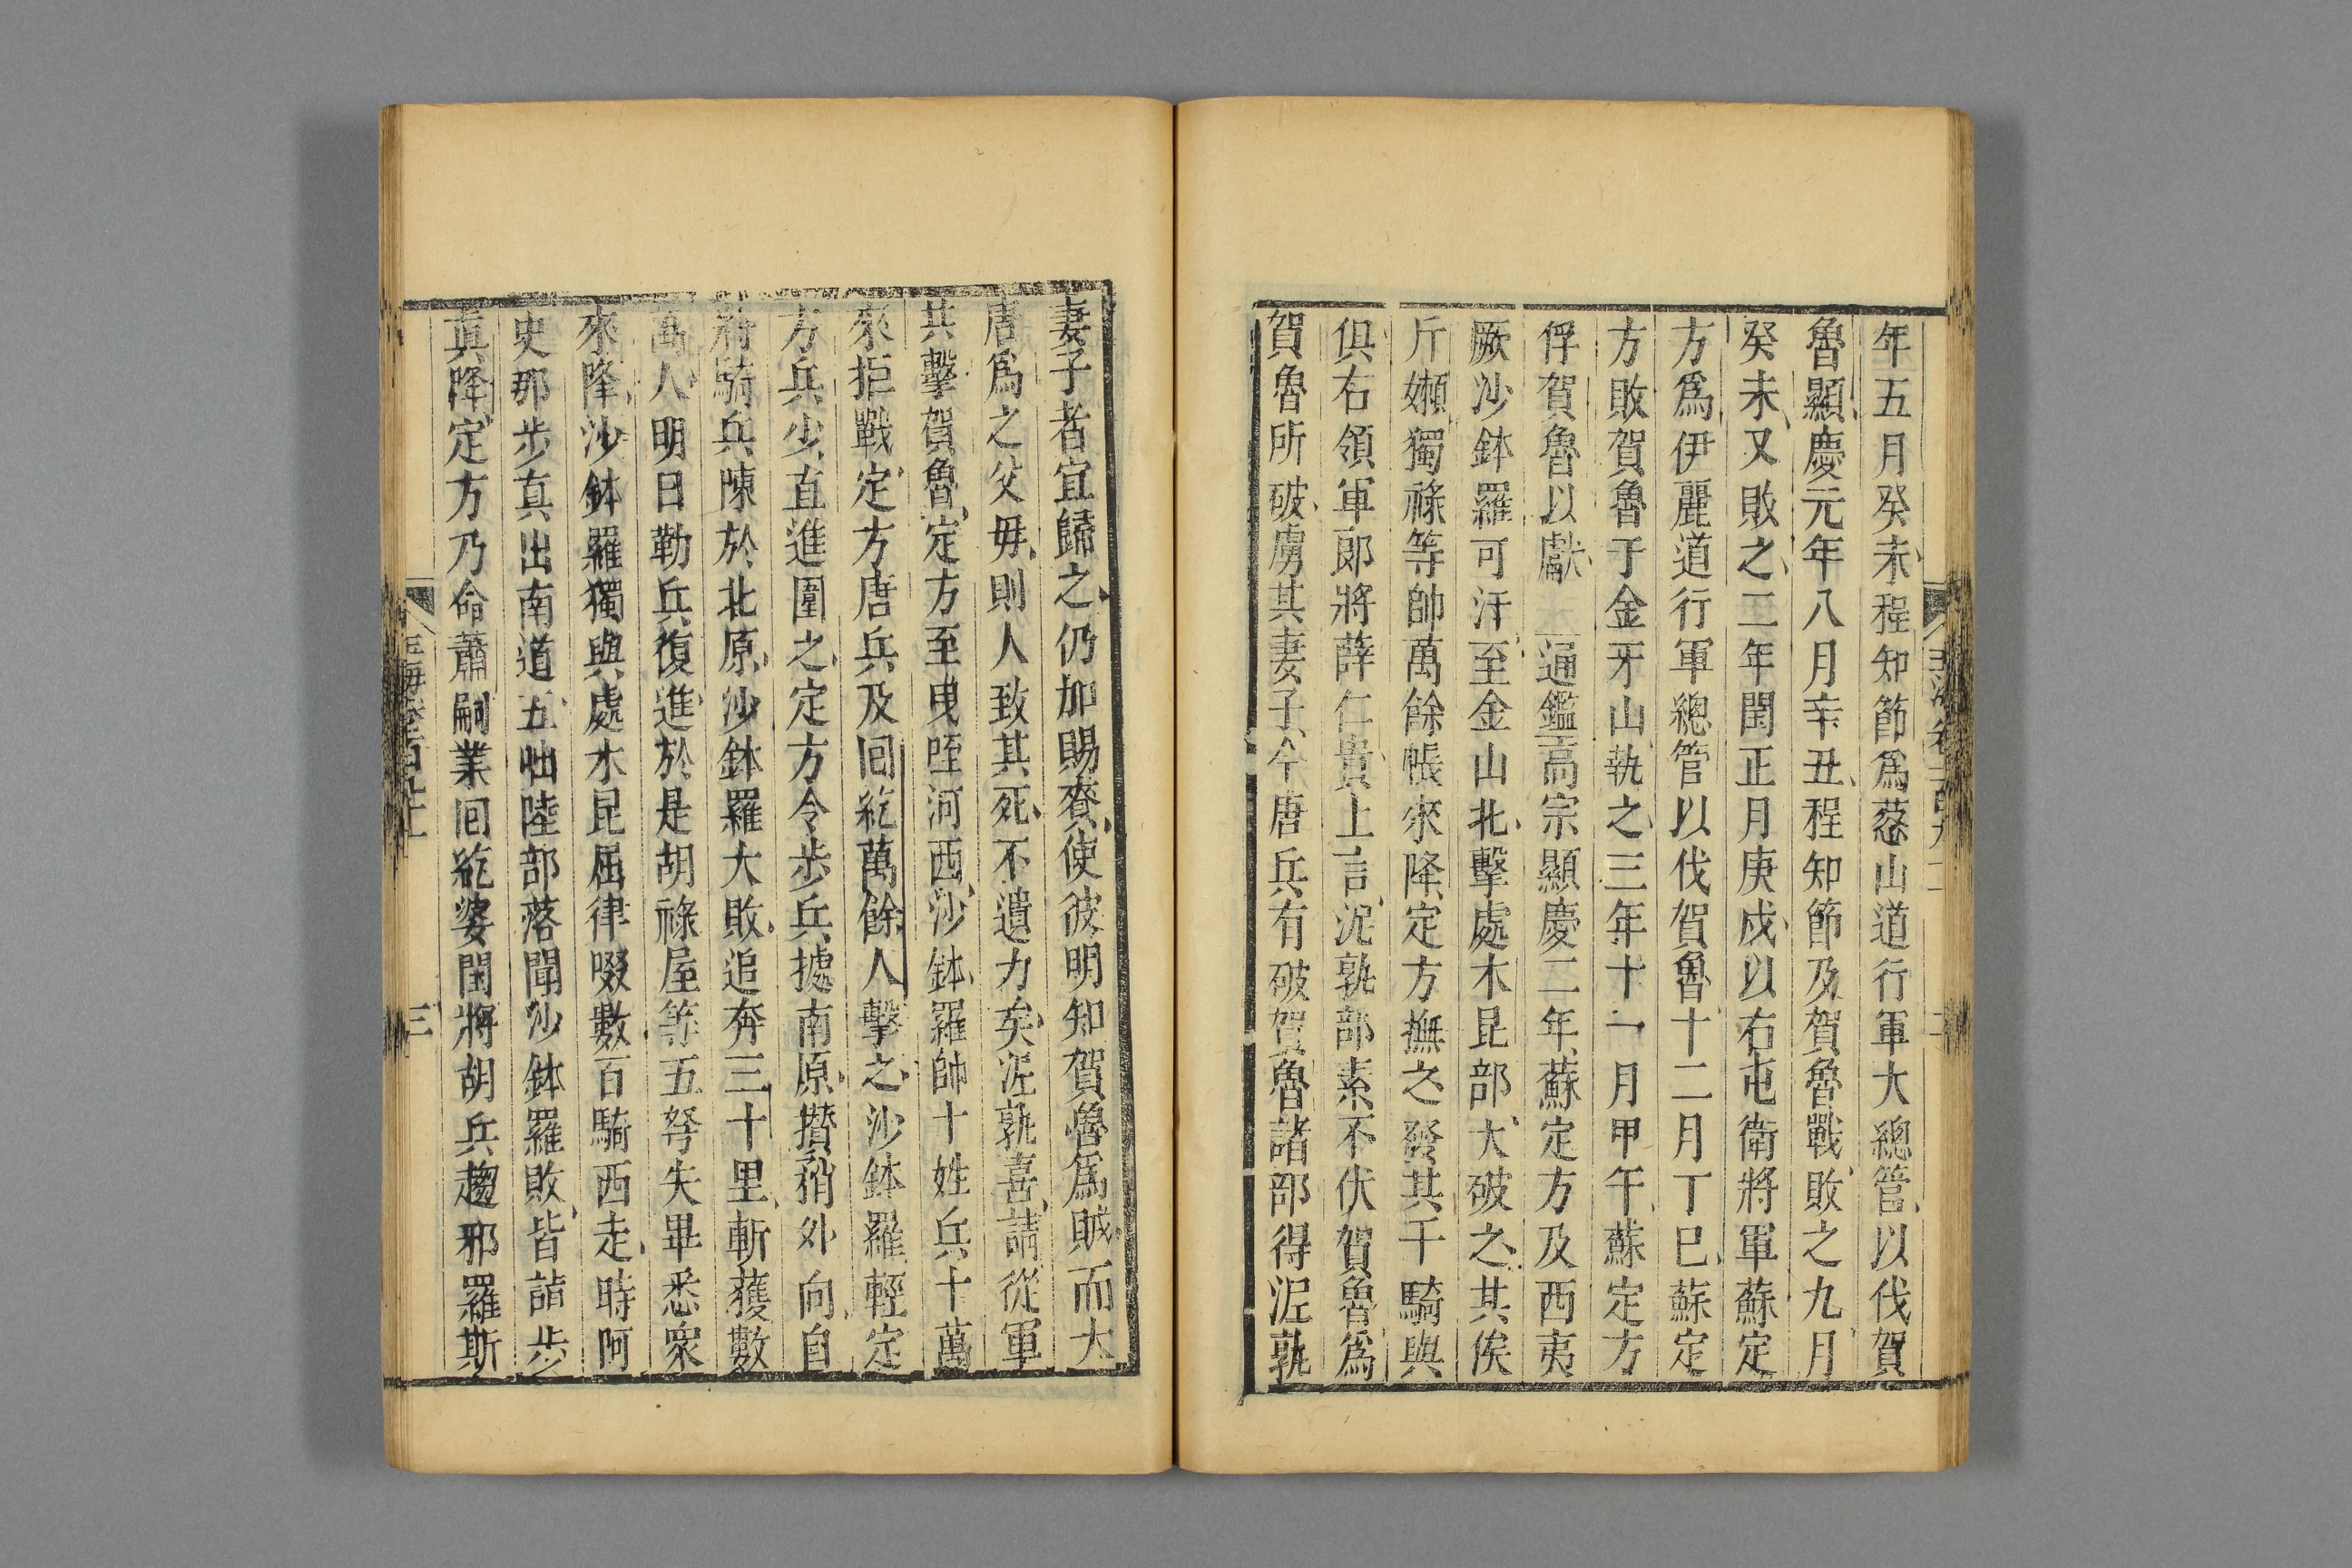 年五月癸未程知節爲葱山道行軍大總管以伐賀
魯顯慶元年八月辛丑程知節及賀魯戰敗之九月
癸未又敗之二年閏正月庚戍以右屯衛將軍蘇定
方爲伊麗道行軍總管以伐賀魯十二月丁巳蘇定
方敗賀魯于金牙山執之三年十一月甲午蘇定方
俘賀魯以獻 通鑑高宗顯慶二年蘇定方及西夷
厥沙鉢羅可汗至金山北擊處木昆部大破之其俟
斤嬾獨祿等帥萬餘帳來降定方撫之發其千騎與
俱右領軍郎將薛仁貴上言泥孰部素不伏賀魯爲
賀魯所破虜其妻子今唐兵有破賀魯諸部得泥孰
妻子者宜歸之仍加賜賚使彼明知賀魯爲賊而大
唐爲之父毋則人致其死不遺力矣泥孰喜請從軍
共擊賀魯定方至曳咥河西沙鉢羅帥十姓兵十萬
來拒戰定方唐兵及囘紇萬餘人擊之沙鉢羅輕定
方兵少直進圍之定方令步兵據南原攢矟外向自
將騎兵陳於北原沙鉢羅大敗追奔三十里斬獲數
萬人明日勒兵復進於是胡祿屋等五弩失畢悉衆
來降沙鉢羅獨與處木昆屈律啜數百騎西走時阿
史那步真出南道五咄陸部落聞沙鉢羅敗皆詣步
真降定方乃命蕭嗣業囘紇婆閏將胡兵趨邪羅斯
三